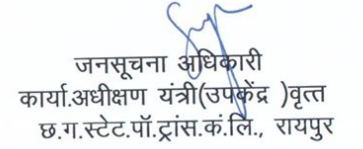 जनसूचना अधिकारी
कार्या.अधीक्षण यंत्री(उपकेंद्र )वृत्त
छ.ग.स्टेट.पॉ.ट्रांस.कं.लि., रायपुर